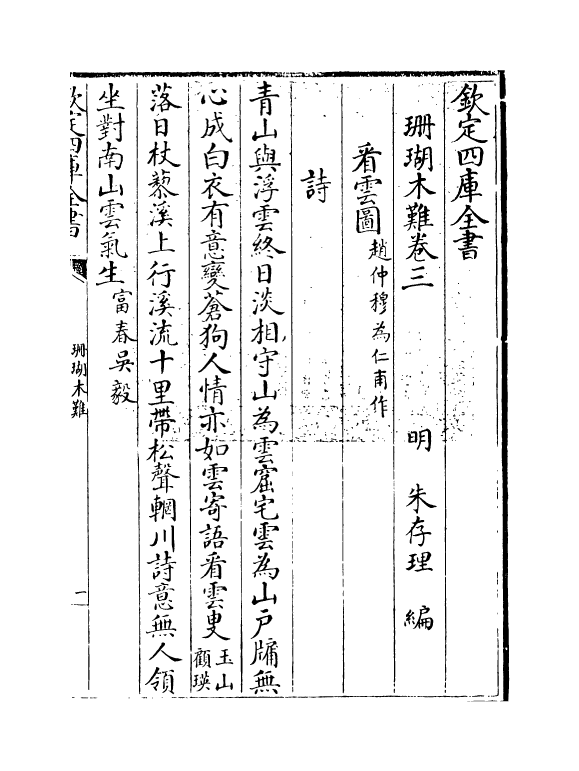 欽定四庫全書
珊瑚木難卷三
明 朱存理 編
看雲圖 趙仲穆為仁甫作
詩
青山與浮雲終日淡相守山為雲窟宅雲為山戶牖無
心成白衣有意變蒼狗人情亦如雲寄語看雲叟 玉山顧瑛
落日杖藜溪上行溪流十里帶松聲輞川詩意無人領
坐對南山雲氣生 富春吳毅
欽定四庫全書
珊瑚木難
一